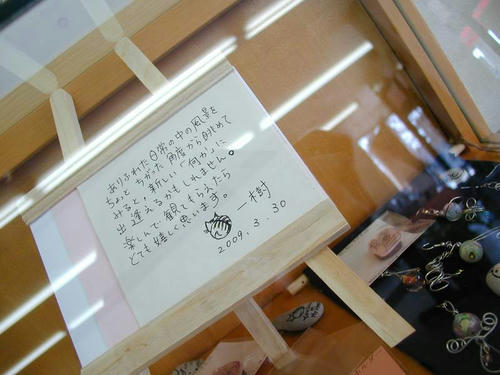 ありふれた日常の中の風景を
ちょっとちがった角度から眺めて
みると！新しい「何か」に
出逢えるかもしれません。
楽しんで観てもらえたら
とても嬉しく思います。
一樹
2009.3.30